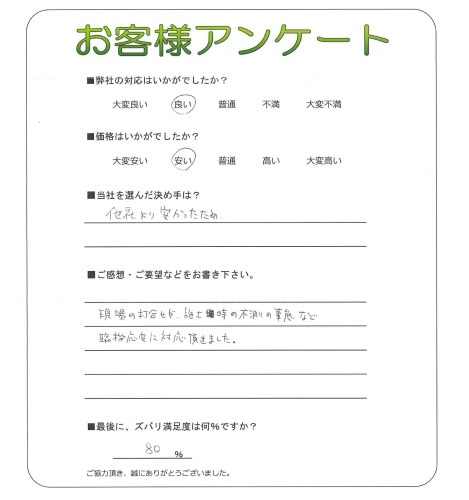 お客様アンケート
■弊社の対応はいかがでしたか？
大変良い 良い 普通 不満 大変不満
■価格はいかがでしたか？
大変安い 安い 普通 高い 大変高い
■当社を選んだ決め手は？
他社より安かったため
■ご感想・ご要望などをお書き下さい。
現場の打合せや、施工時の不測の事態など
臨機応変に対応頂きました。
■最後に、ズバリ満足度は何％ですか？
80 ％
ご協力頂き、誠にありがとうございました。